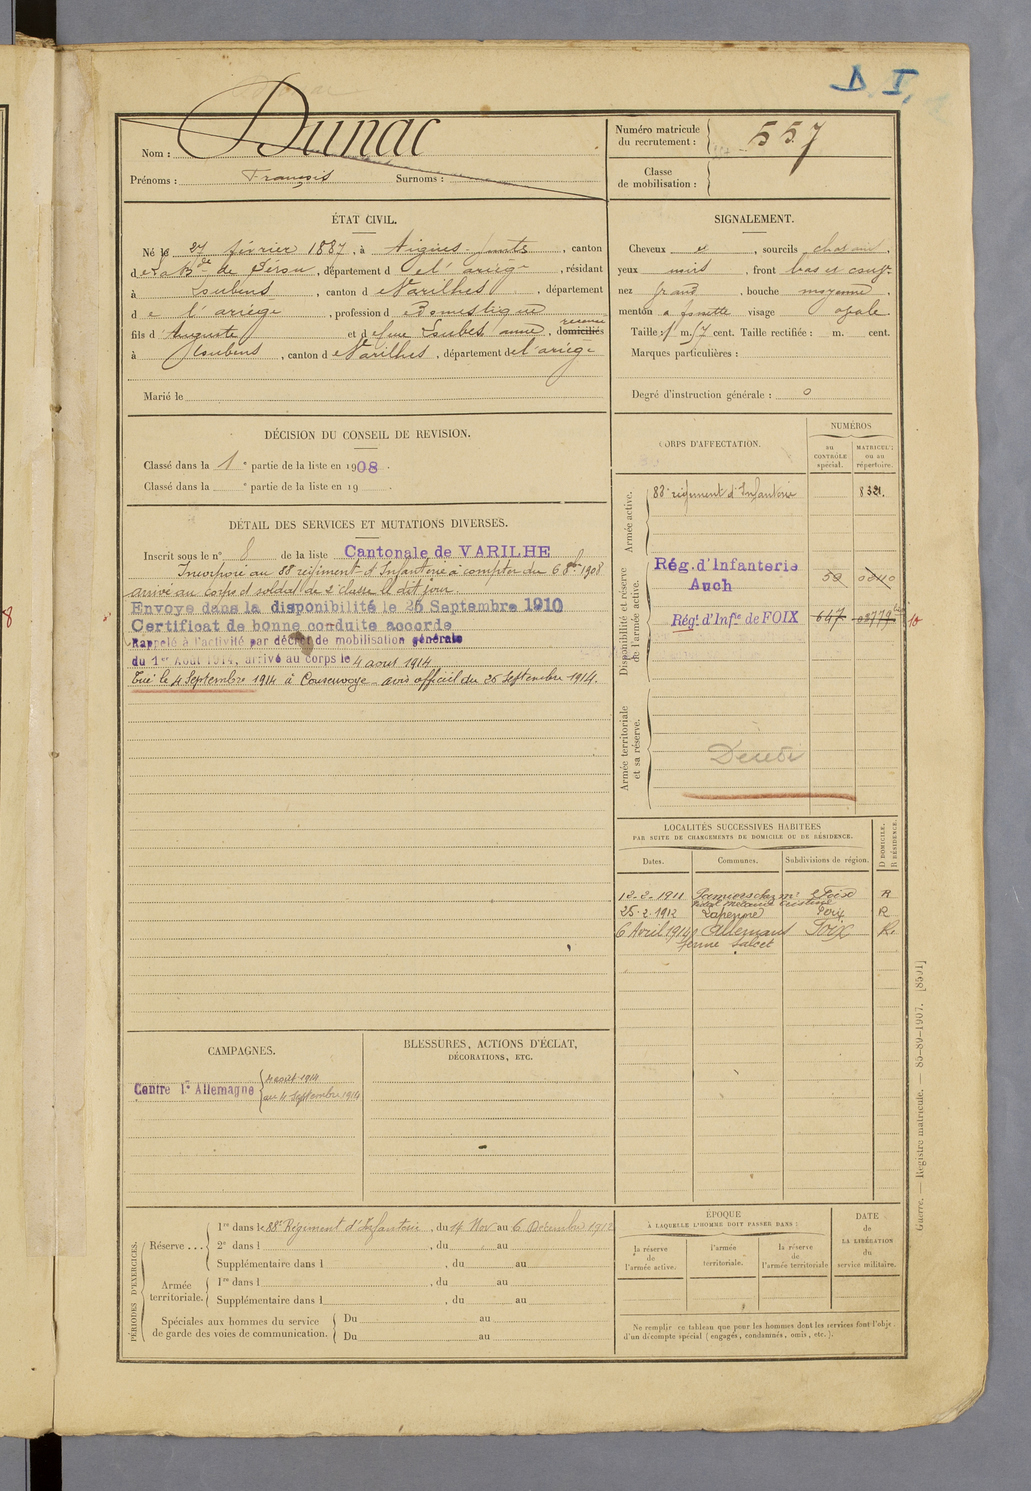 D I,
Nom : Dunac
Prénoms : François Surnoms :
Numéro matricule du recrutement : 557
Classe de mobilisation :
ÉTAT CIVIL.
Né le 27 février 1887, à Aigues-Juntes, canton
de La Bde de Sérou, département de l'ariège, résidant
à Loubens, canton d Varilhes, département
de l'ariège, profession d Domestique
fils d' Auguste et d feue Loubes anne, domiciliés
à Loubens, canton d Varilhes, département de l'ariège
Marié le
SIGNALEMENT.
Cheveux et, sourcils chatain,
yeux noirs, front bas et
nez grand, bouche moyenne,
menton a fossette visage ovale
Taille : 1 m. 57 cent. Taille rectifiée : m. cent.
Marques particulières :
Degré d'instruction générale : 0
DÉCISION DU CONSEIL DE REVISION.
Classé dans la 1e partie de la liste en 1908.
Classé dans la e partie de la liste en 19
DÉTAIL DES SERVICES ET MUTATIONS DIVERSES.
Inscrit sous le n° 8 de la liste Cantonale de VARILHE
Incorporé au 88 régiment d'Infanterie à compter du 6 8bre 1908
arrivé au corps et soldat de 2e classe le dit jour.
Envoyé dans la disponibilité le 26 Septembre 1910
Certificat de bonne conduite accordé
Rappelé à l'activité par décret de mobilisation générale
du 1er Août 1914, arrivé au corps le 4 aout 1914
Tué le 4 Septembre 1914 à Consenvoye - avis officiel du 26 Septembre 1914.
CORPS D'AFFECTATION.
NUMÉROS
au CONTRÔLE spécial.
MATRICULE ou au répertoire.
Armée active.
88e régiment d'Infanterie 8321.
Disponibilité et réserve de l'armée active.
Rég. d'Infanterie
Auch 59
Régt. d'Inf.ie de FOIX 647
Armée territoriale et sa réserve.
Décédé
LOCALITÉS SUCCESSIVES HABITÉES
PAR SUITE DE CHANGEMENTS DE DOMICILE OU DE RÉSIDENCE.
Dates. Communes. Subdivisions de région. D DOMICILE. R RÉSIDENCE.
12-2-1911 Pamiers chez mr Foix R
25-2-1912 Lapenne Foix R
6 Avril 1914 Allemans Foix R
ferme Salcet
CAMPAGNES.
Contre l'Allemagne { 4 août 1914
au 4 Septembre 1914
BLESSURES, ACTIONS D'ÉCLAT,
DÉCORATIONS, ETC.
PÉRIODES D'EXERCICES.
Réserve ... 1re dans le 88e Régiment d'Infanterie, du 14 Nov au 6 Décembre 1912
2e dans l , du au
Supplémentaire dans l , du au
Armée territoriale. 1re dans l , du au
Supplémentaire dans l , du au
Spéciales aux hommes du service de garde des voies de communication. Du au
Du au
ÉPOQUE
À LAQUELLE L'HOMME DOIT PASSER DANS :
la réserve de l'armée active.
l'armée territoriale.
la réserve de l'armée territoriale
DATE de LA LIBÉRATION du service militaire.
Ne remplir ce tableau que pour les hommes dont les services font l'objet
d'un décompte spécial (engagés, condamnés, omis, etc.).
Guerre. — Registre matricule. — 85-89-1907. [8501]